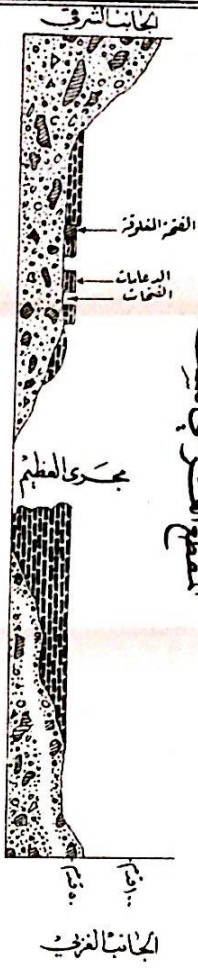 الجانب الشرقي
الفتحة المغلوقة
الدعامات
الفتحات
مجرى العظيم
٥٠ قدم
١٠٠ قدم
الجانب الغربي